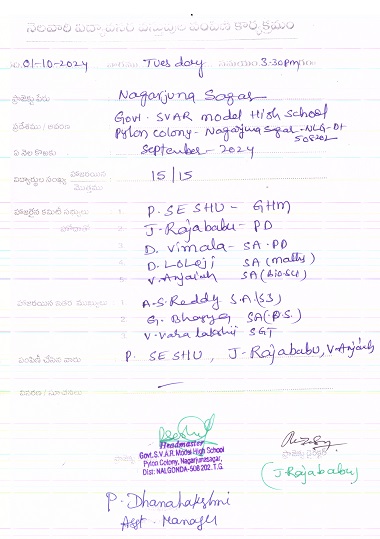 నెలవారి విద్యావనరు వస్తువుల పంపిణీ కార్యక్రమం
01-10-2024 వారము Tuesday సమయం 3.30pm
ప్రాజెక్టు పేరు Nagarjuna Sagar
ప్రదేశము / వివరణ Govt. SVAR model High school
Pylon colony - Nagarjuna Sagar - NLG-Dt
508202
ఏ నెల కొరకు September - 2024
విద్యార్థుల సంఖ్య హాజరైయిన 15/15
మొత్తము
హాజరైన కమిటీ సభ్యులు 1. P. SESHU - GHM
2. J. Rajababu - PD
3. D. Vimala - SA. PD
4. D. Loleji SA (maths)
5. V. Anjaiah SA (Bio.Sci)
హాజరయిన ఇతర సభ్యులు 1. A.S. Reddy S.A.(S3)
2. G. Bhavya SA (P.S.)
3. V. Vara lakshmi SGT
పంపిణీ చేసిన వారు P. SESHU, J. Rajababu, V. Anjaiah
వివరణ / సూచనలు
Headmaster
Govt. S.V.A.R. Model High School
Pylon Colony, Nagarjunasagar,
Dist: NALGONDA-508 202. T.G.
(J. Rajababu)
P. Dhanalakshmi
Asst. Manager